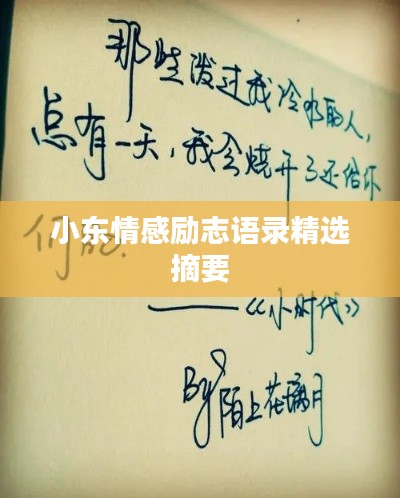 那些泼过我冷水的人,
总有一天,我会烧开了还给你
小东情感励志语录精选
摘要
——《小时代》
By 陌上花璃月